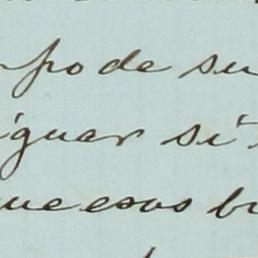 pode su
iguar si
que esos bu